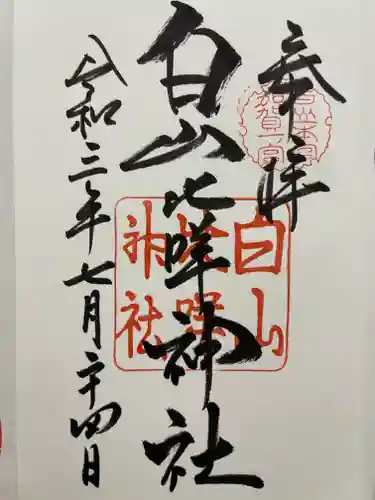 奉拝
白山比咩神社
令和三年七月二十四日
加賀一宮
白山
比咩
神社